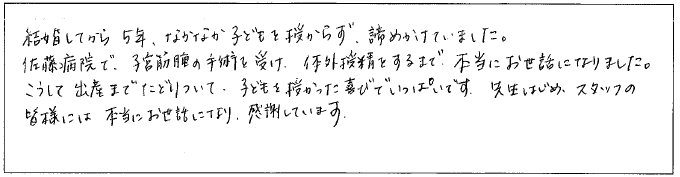 結婚してから 5年、なかなか子どもを授からず、諦めかけていました。
佐藤病院で、子宮筋腫の手術を受け、体外授精をするまで、本当にお世話になりました。
こうして 出産までたどりついて、子どもを授かった喜びでいっぱいです。先生はじめ、スタッフの
皆様には 本当にお世話になり、感謝しています。